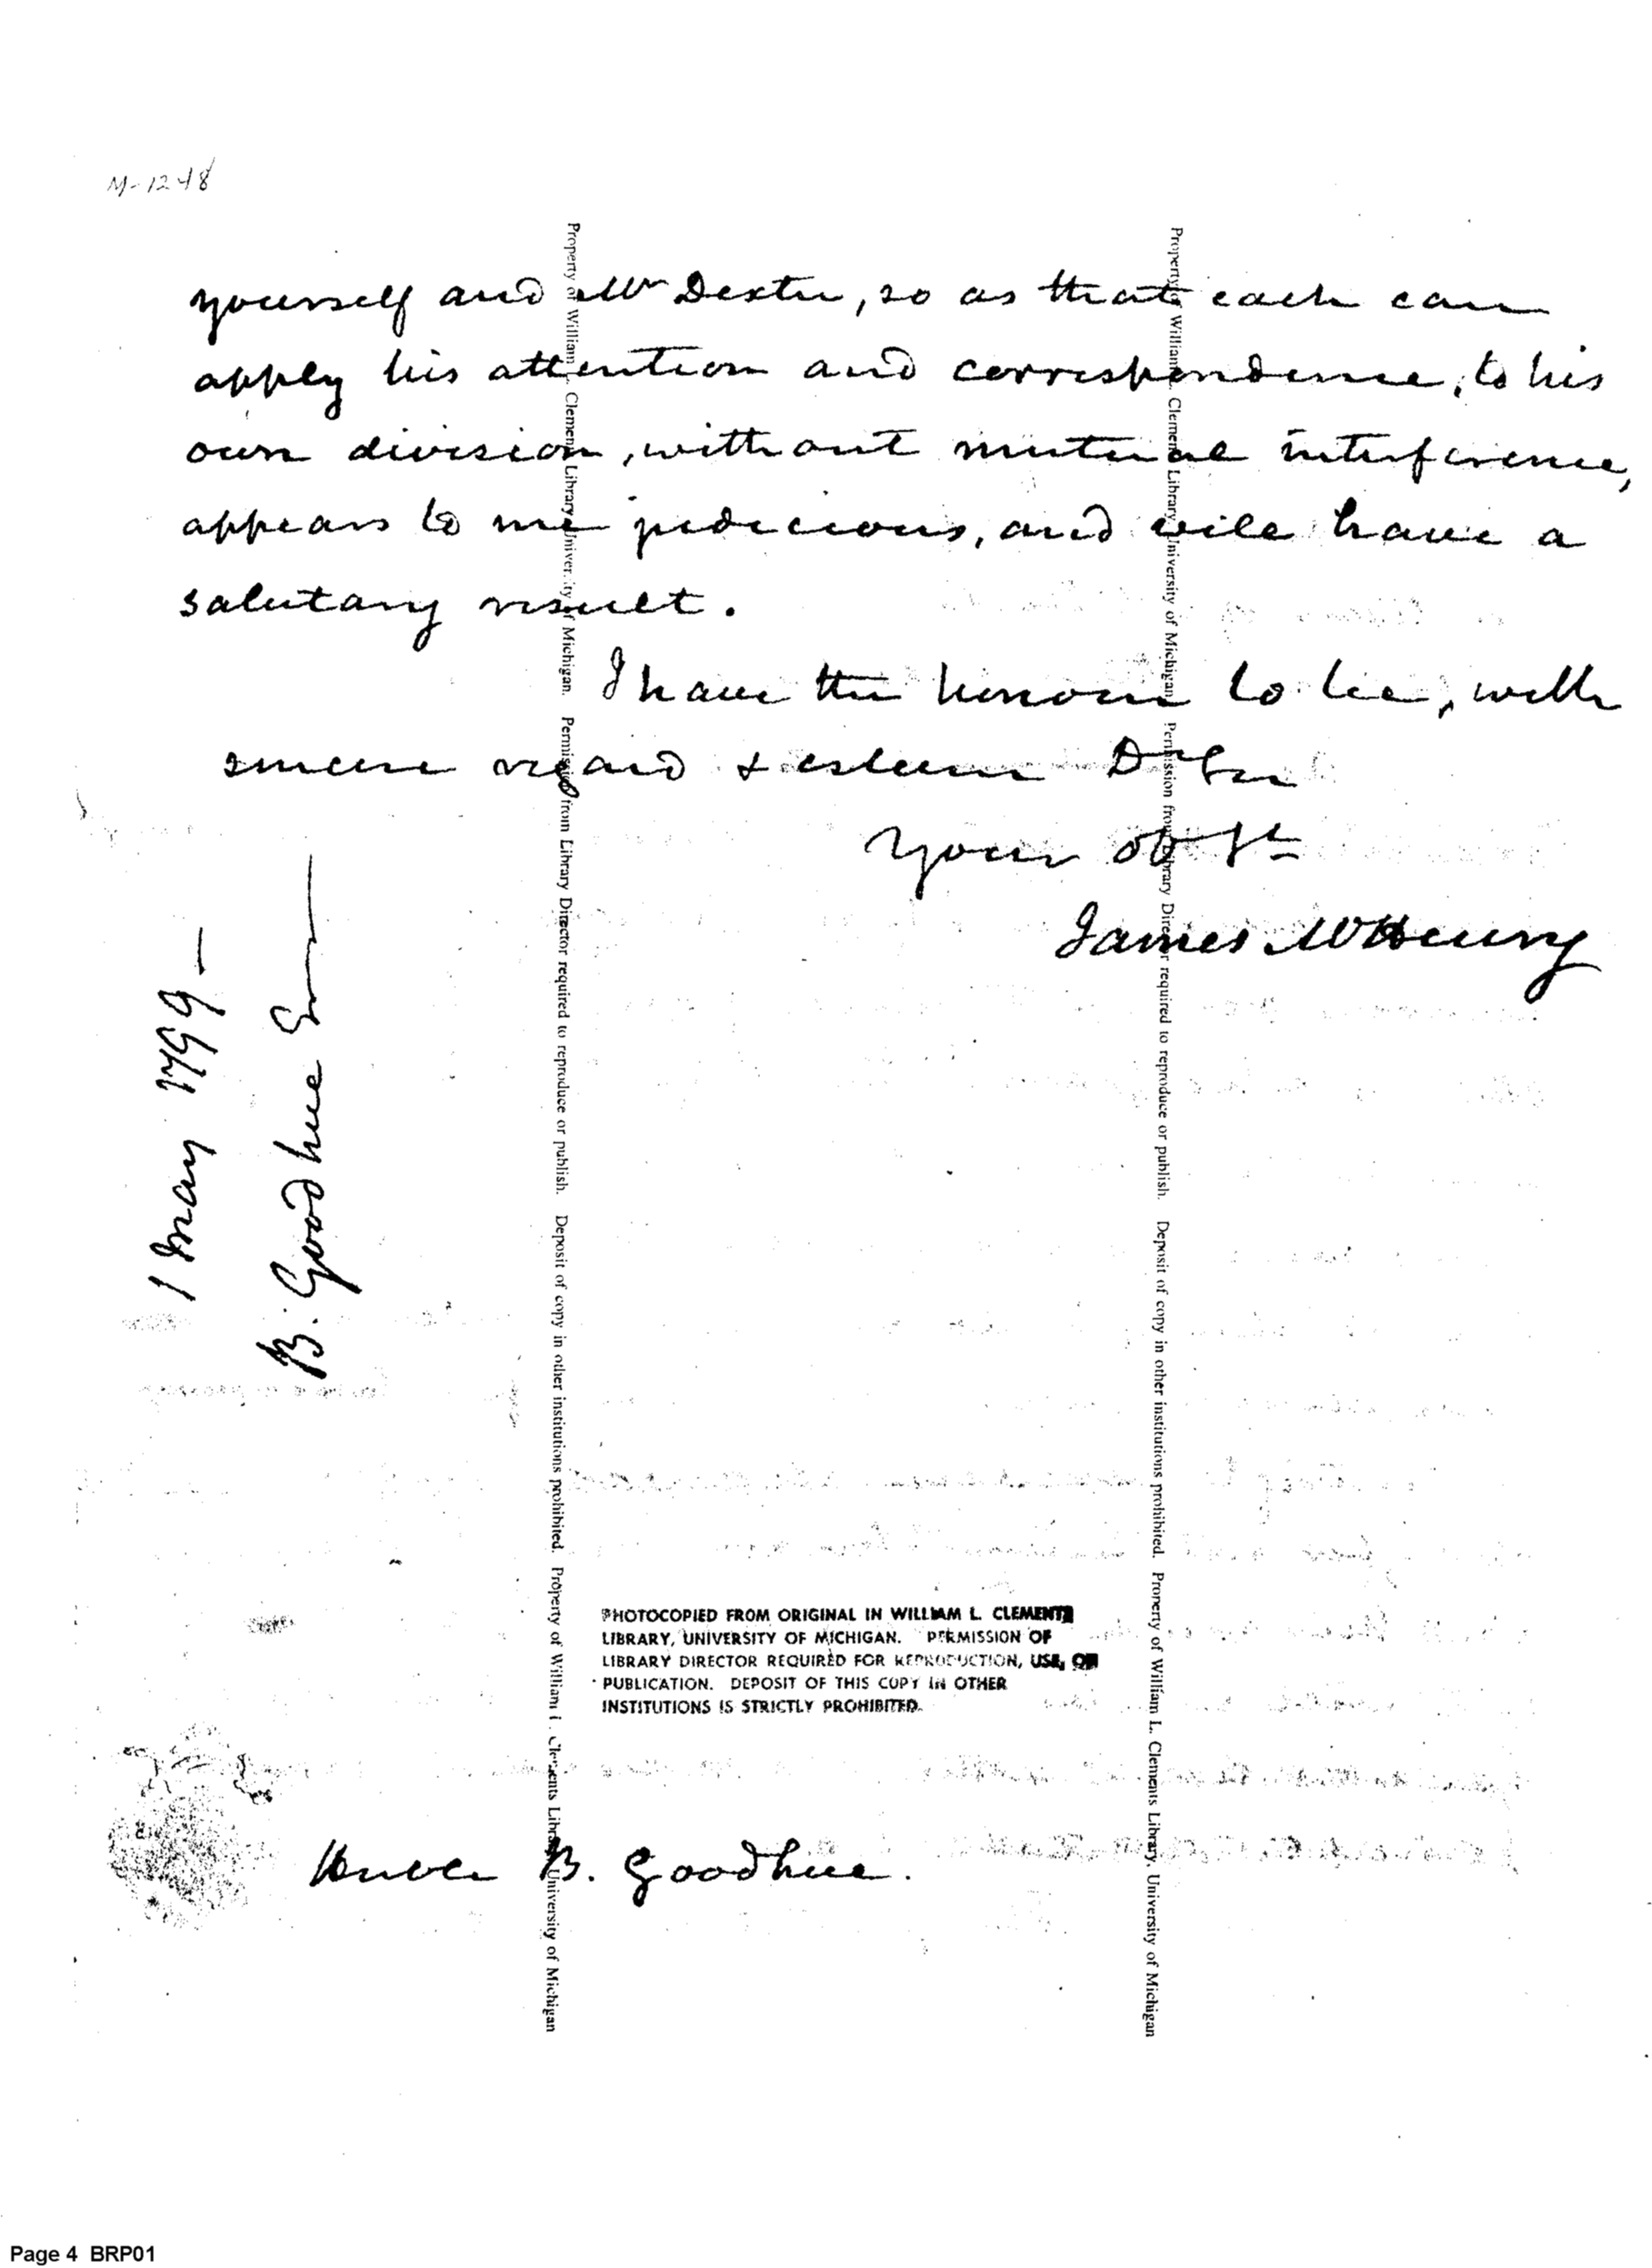 M-1248
yourself and Mr Dexter, so as that each can
apply his attention and correspondence, to his
own division, without mutual interference,
appears to me judicious, and will have a
salutary result.
I have the honour to be, with
sincere regard & esteem Dr Sir
Your ob st
James McHenry
1 May 1799 —
B. Goodhue
PHOTOCOPIED FROM ORIGINAL IN WILLIAM L. CLEMENTS
LIBRARY, UNIVERSITY OF MICHIGAN. PERMISSION OF
LIBRARY DIRECTOR REQUIRED FOR REPRODUCTION, USE, OR
PUBLICATION. DEPOSIT OF THIS COPY IN OTHER
INSTITUTIONS IS STRICTLY PROHIBITED.
B. Goodhue.
Property of William L. Clements Library, University of Michigan. Permission from Library Director required to reproduce or publish. Deposit of copy in other institutions prohibited. Property of William L. Clements Library, University of Michigan
Property of William L. Clements Library, University of Michigan. Permission from Library Director required to reproduce or publish. Deposit of copy in other institutions prohibited. Property of William L. Clements Library, University of Michigan
Page 4 BRP01